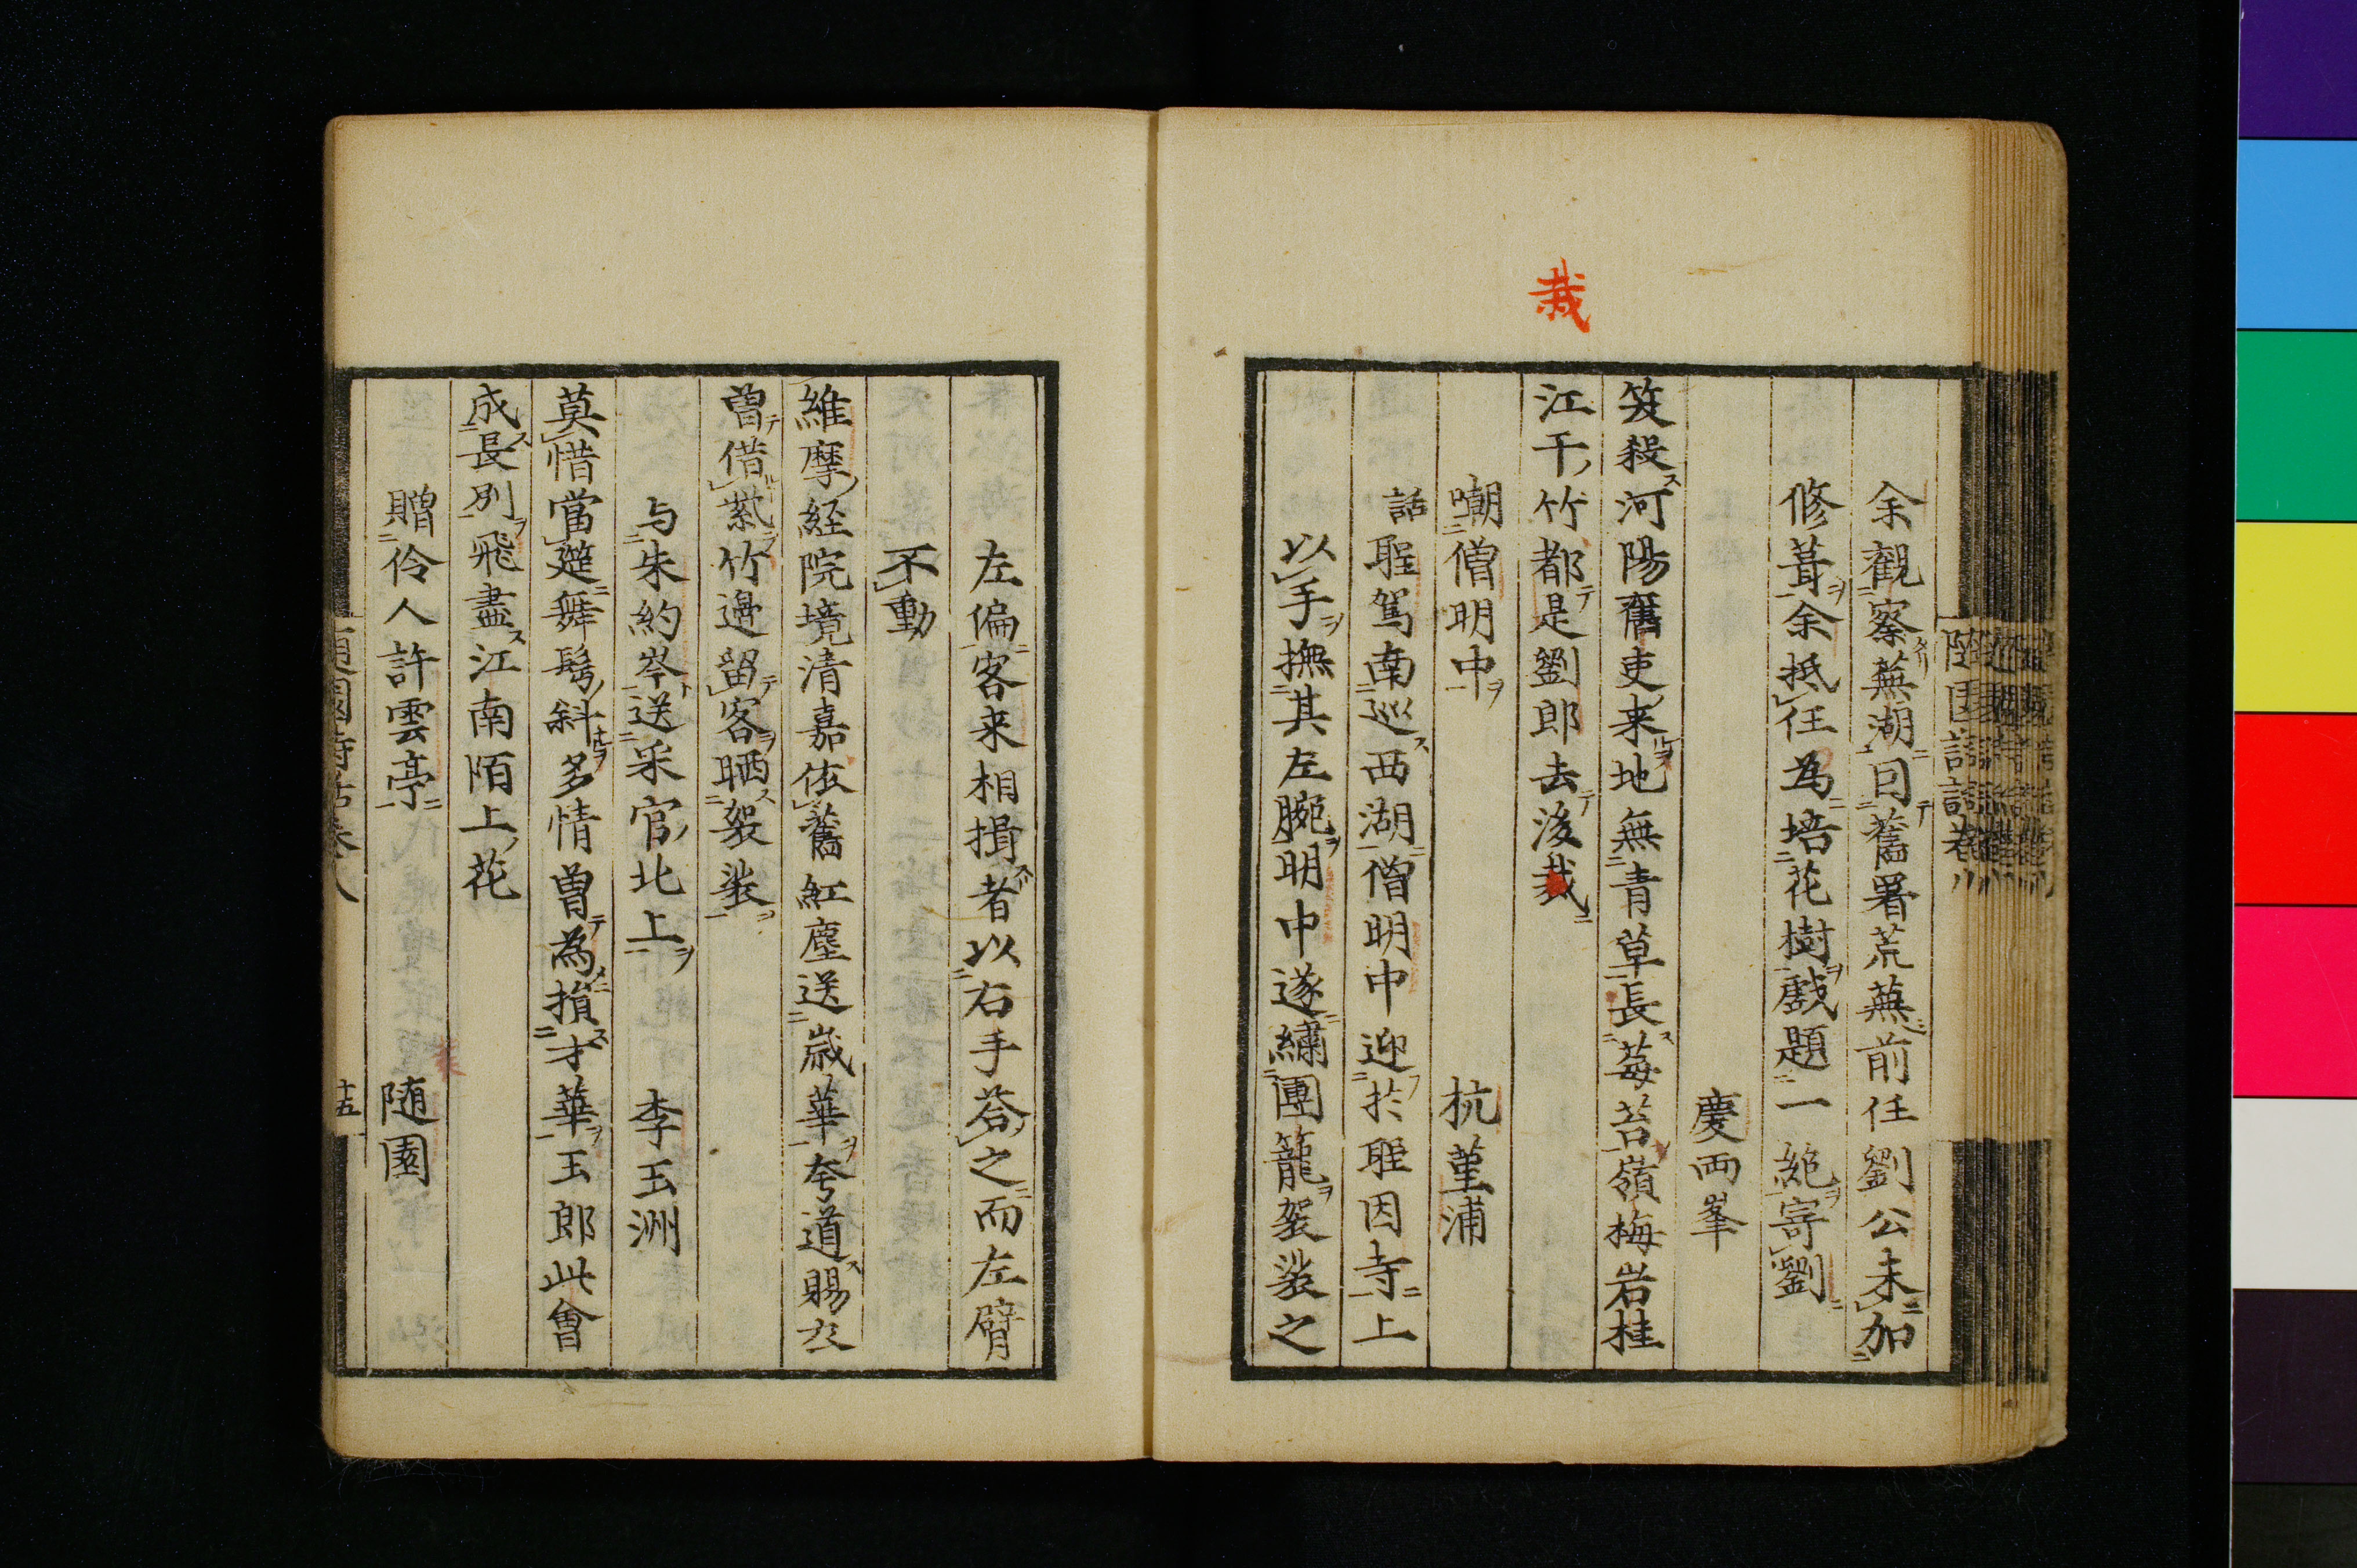 栽
余観察蕪湖回舊署荒蕪前任劉公未加
修葺余抵任為培花樹戯題一絶寄劉
慶両峯
笑殺河陽舊吏来地無青草長莓苔嶺梅岩桂
江干竹都是劉郎去後栽
嘲僧明中 杭菫浦
話聖駕南巡西湖僧明中迎於聖因寺上
以手撫其左腕明中遂繍團籠袈裟之
左偏客来相揖者以右手荅之而左臂
不動
維摩経院境清嘉依舊紅塵送歳華夸道賜衣
曽借紫竹邉留客晒袈裟
与朱約岑送采官北上 李玉洲
莫惜當筵舞髩斜多情曽為損才華玉郎此會
成長別飛盡江南陌上花
贈伶人許雲亭 随園
十五